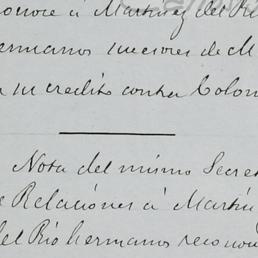 onoce á Martinez del Ri
hermanos sucesores de M
su credito contra Colom
Nota del mismo Secret
e Relaciones á Martin
del Rio hermanos recono